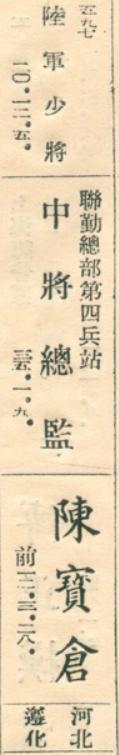 五九七
陸軍少將
二〇.一二.五.
聯勤總部第四兵站
中將總監
三五.一.九.
陳寶倉
前一二.三.二八.
河北
遵化